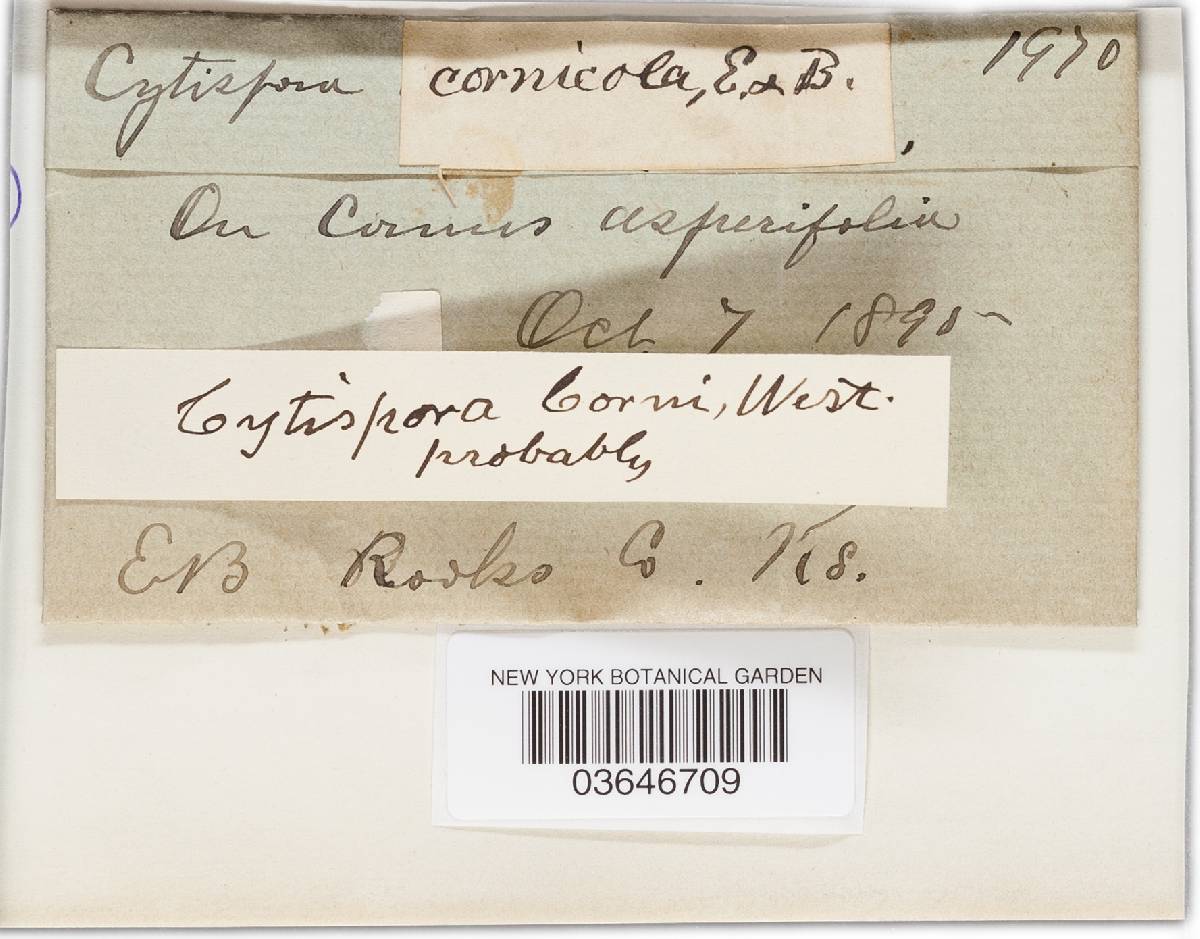 Cytispora cornicola, E. & B. 1970
On Cornus asperifolia
Oct 7 1895
Cytispora Corni, West.
probably
EB Rooks Co. Ks.
NEW YORK BOTANICAL GARDEN
03646709